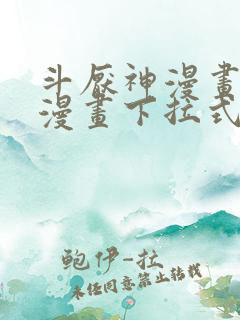 斗厭神漫畫
漫畫下拉式
鲍伊-拉
未经同意禁止转载